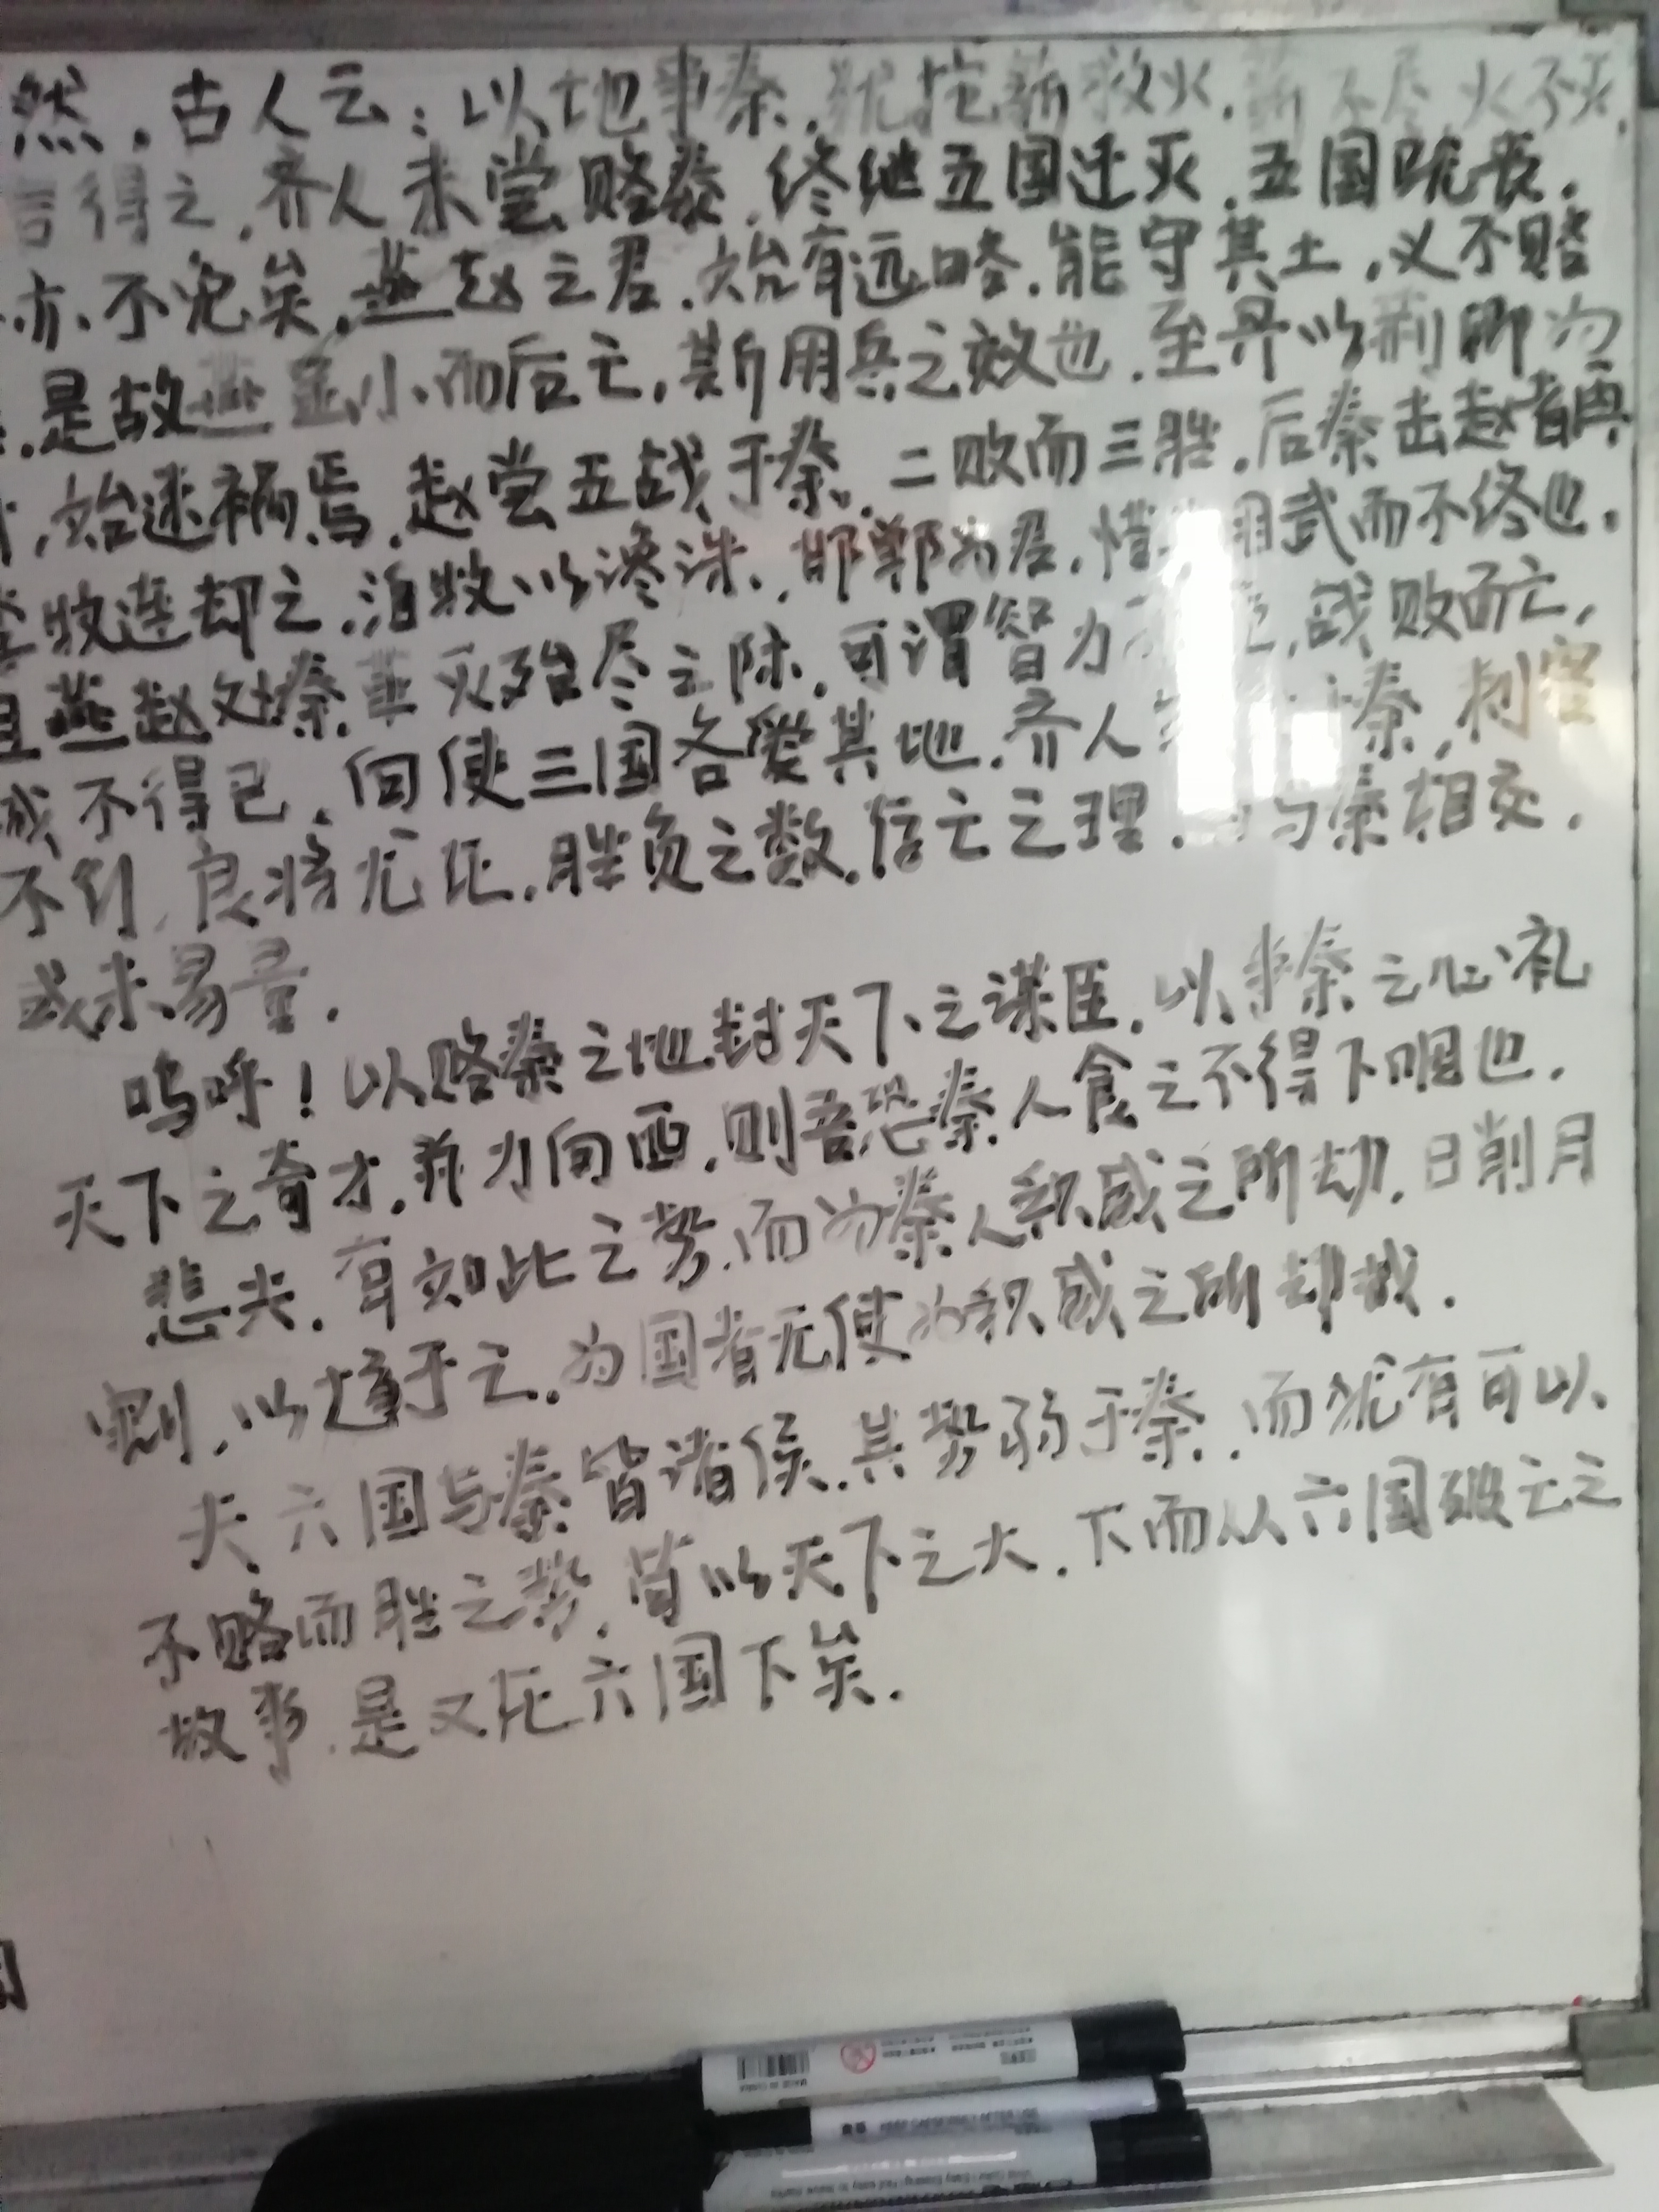 然，古人云：以地事秦，犹抱薪救火，薪不尽，火不灭，
言得之，齐人未尝赂秦，终继五国迁灭，五国既丧，
亦不免矣，燕赵之君，始有远略，能守其土，义不赂
，是故燕虽小而后亡，斯用兵之效也，至丹以荆卿为
，始速祸焉，赵尝五战于秦，二败而三胜，后秦击赵者再
牧连却之，洎牧以谗诛，邯郸为君，惜其用武而不终也，
且燕赵处秦革灭殆尽之际，可谓智力，战败而亡，
诚不得已，向使三国各爱其地，齐人秦，刺客
不行，良将犹在，胜负之数，存亡之理，与秦相交，
或未易量，
呜呼！以赂秦之地封天下之谋臣，以事秦之心礼
天下之奇才，并力向西，则吾恐秦人食之不得下咽也，
悲夫，有如此之势，而为秦人积威之所劫，日削月
割，以趋于亡，为国者无使为积威之所却哉，
夫六国与秦皆诸侯，其势弱于秦，而犹有可以
不赂而胜之势，苟以天下之大，下而从六国破亡之
故事，是又在六国下矣，